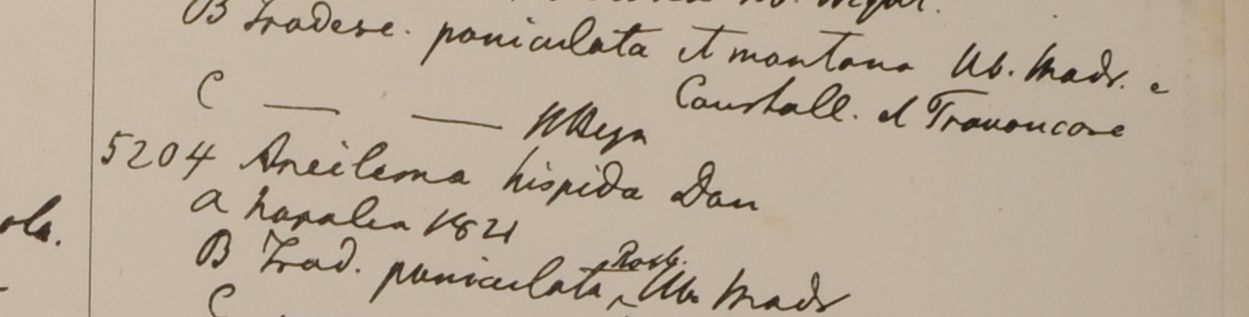 B Tradesc. paniculata et montana Hb. Madr. e
Courtall. et Travancore
C — — HBeya
5204 Aneilema hispida Don
a Napalia 1821
B Trad. paniculata Roxb. Hb. Madr
C